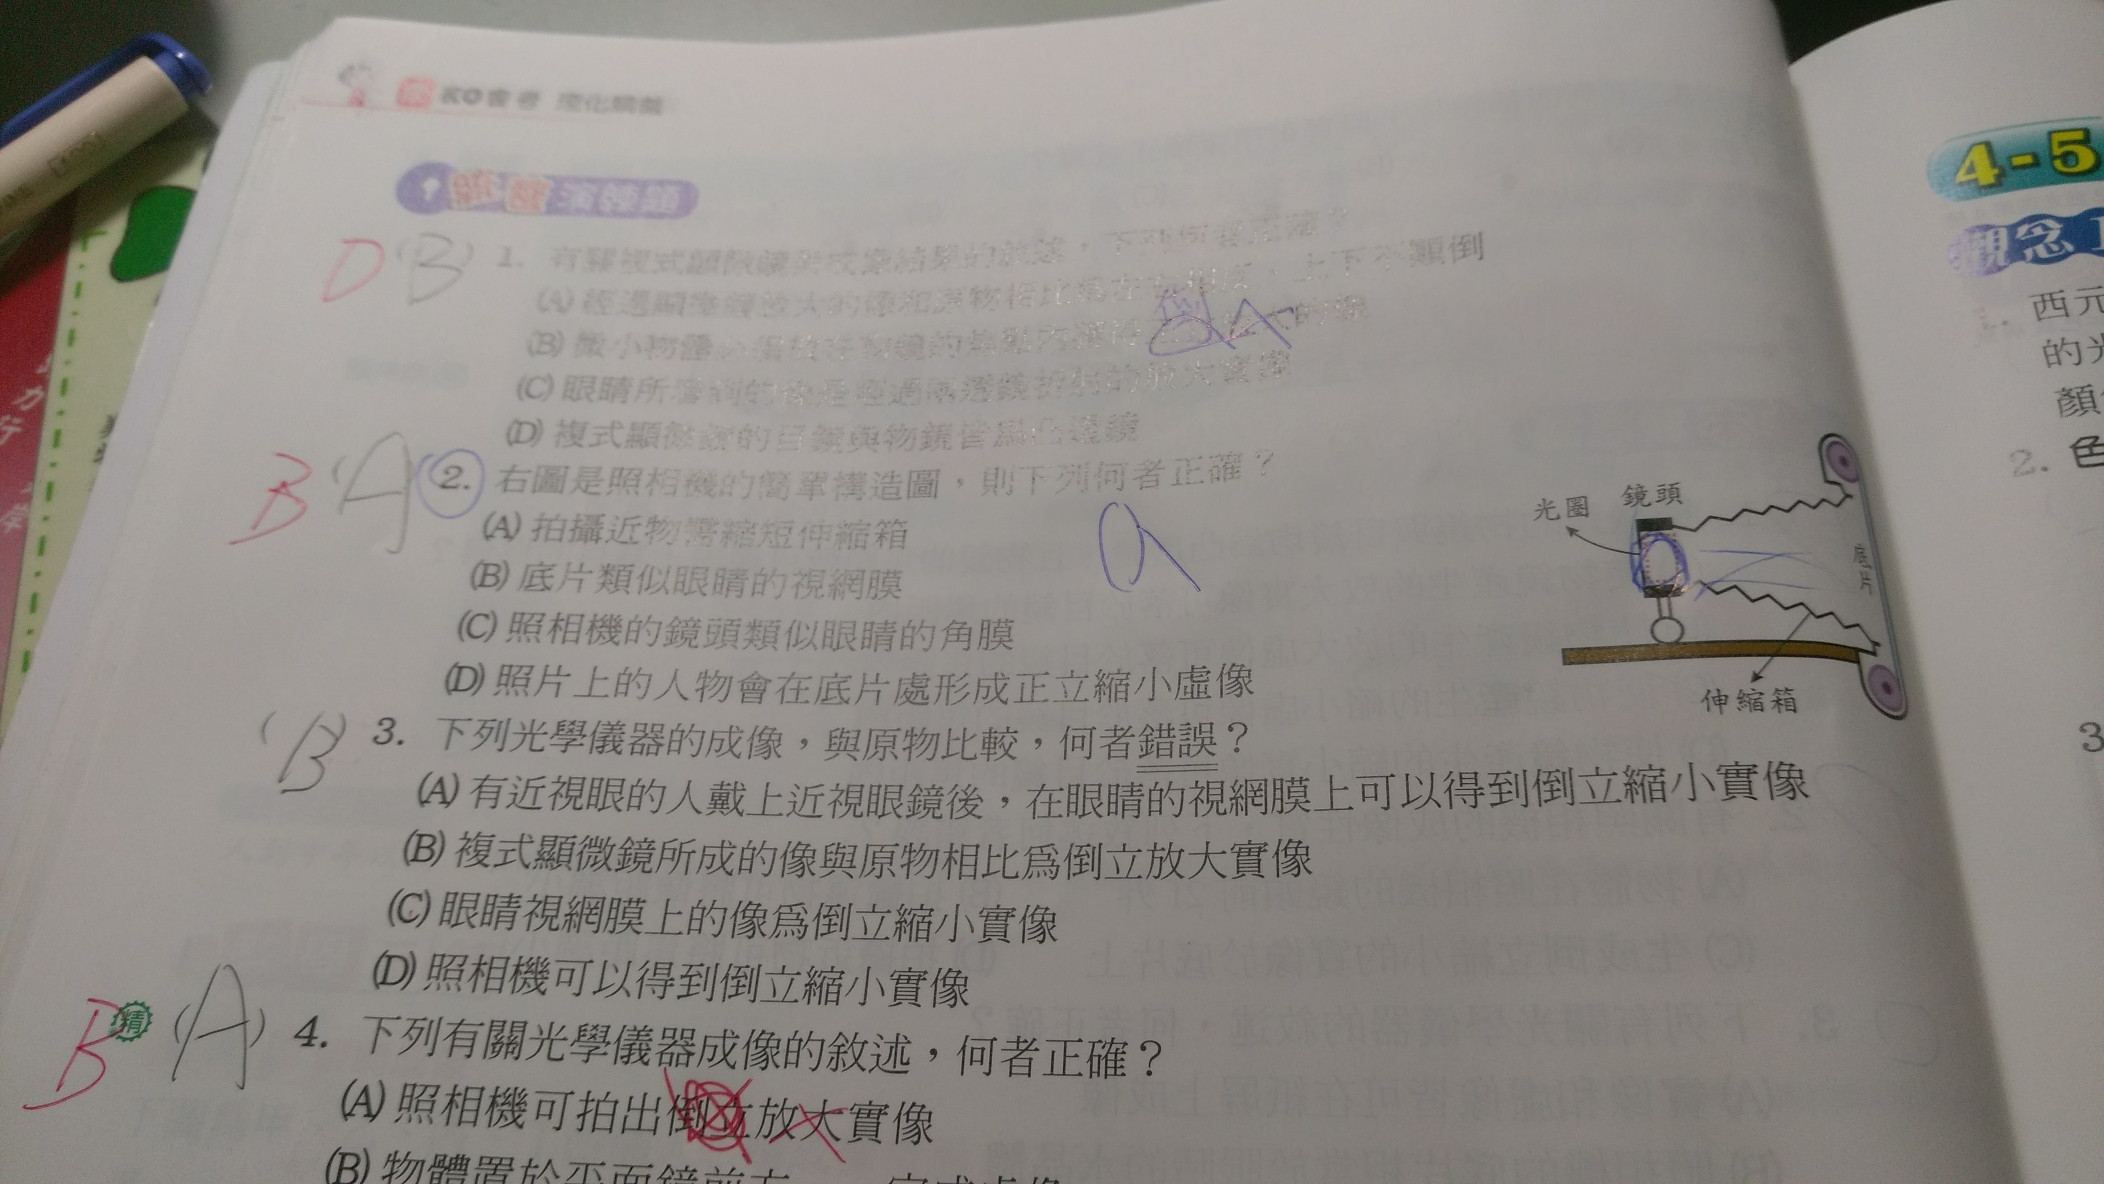 KO會考 理化講義
統整演練題
D (B) 1. 有關複式顯微鏡與成像結果的敘述，下列何者正確？
(A) 經過顯微鏡放大的像和原物相比為左右相反，上下不顛倒
倒
(C) 眼睛所看到的像是經過兩透鏡折射的放大實像
(D) 複式顯微鏡的目鏡與物鏡皆為凸透鏡
B (A) 2. 右圖是照相機的簡單構造圖，則下列何者正確？
(A) 拍攝近物需縮短伸縮箱
(B) 底片類似眼睛的視網膜
(C) 照相機的鏡頭類似眼睛的角膜
(D) 照片上的人物會在底片處形成正立縮小虛像
光圈 鏡頭
底片
伸縮箱
(B) 3. 下列光學儀器的成像，與原物比較，何者錯誤？
(A) 有近視眼的人戴上近視眼鏡後，在眼睛的視網膜上可以得到倒立縮小實像
(B) 複式顯微鏡所成的像與原物相比爲倒立放大實像
(C) 眼睛視網膜上的像爲倒立縮小實像
(D) 照相機可以得到倒立縮小實像
B 精 (A) 4. 下列有關光學儀器成像的敘述，何者正確？
(A) 照相機可拍出倒立放大實像
(B) 物體置於平面鏡前方
4-5
觀念 1
1. 西元
的光
顏
2. 色
3